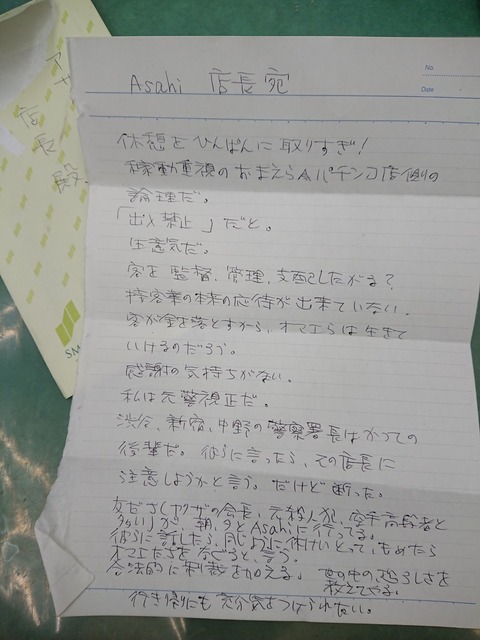 店長
殿
SM
No.
Date
Asahi 店長宛
休憩を ひんぱんに 取りすぎ!
稼動重視の おまえら パチンコ店側の
論理だ。
「出入禁止」だと。
生意気だ。
客を 監督、管理、支配したがる?
接客業の本来の応待が出来ていない。
客が金を落とすから、オマエらは生きて
いけるのだろう。
感謝の気持ちがない。
私は元警視正だ。
渋谷、新宿、中野の警察署長はかつての
後輩だ。彼らに言ったら、その店長に
注意しようかと言う。だけど断った。
友だち(ヤクザの会長、元殺人犯、空手高段者と
多い)が、朝、夕とAsahiに行ってる。
彼らに話したら、同じように休けいとって、もめたら
オマエたちをなぐると、言う。
合法的に制裁を加える。世の中の恐ろしさを
教えてやる。
行き帰りにも充分気をつけられたい。